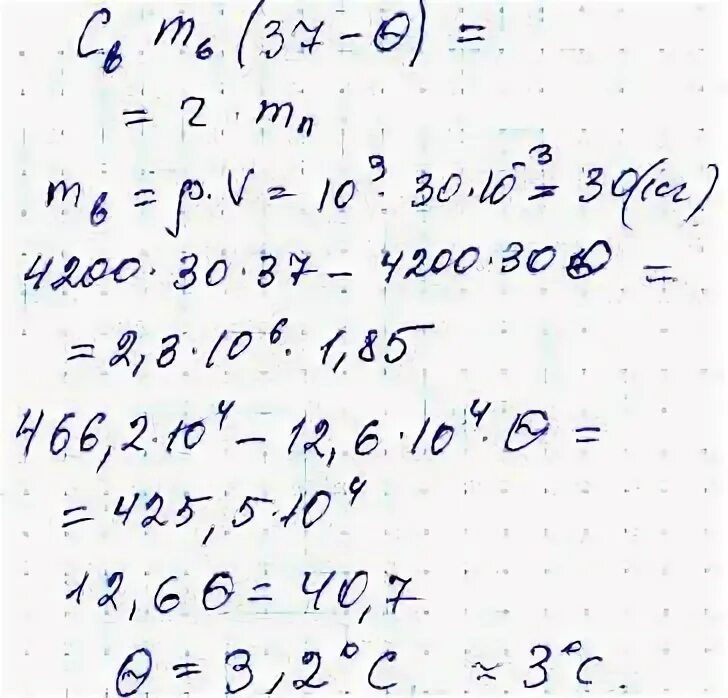 C_в m_в (37 − Θ) =
= r · m_п
m_в = ρ · V = 10³ · 30 · 10⁻³ = 30 (кг)
4200 · 30 · 37 − 4200 · 30 Θ =
= 2,3 · 10⁶ · 1,85
466,2 · 10⁴ − 12,6 · 10⁴ · Θ =
= 425,5 · 10⁴
12,6 Θ = 40,7
Θ = 3,2°C ≈ 3°C